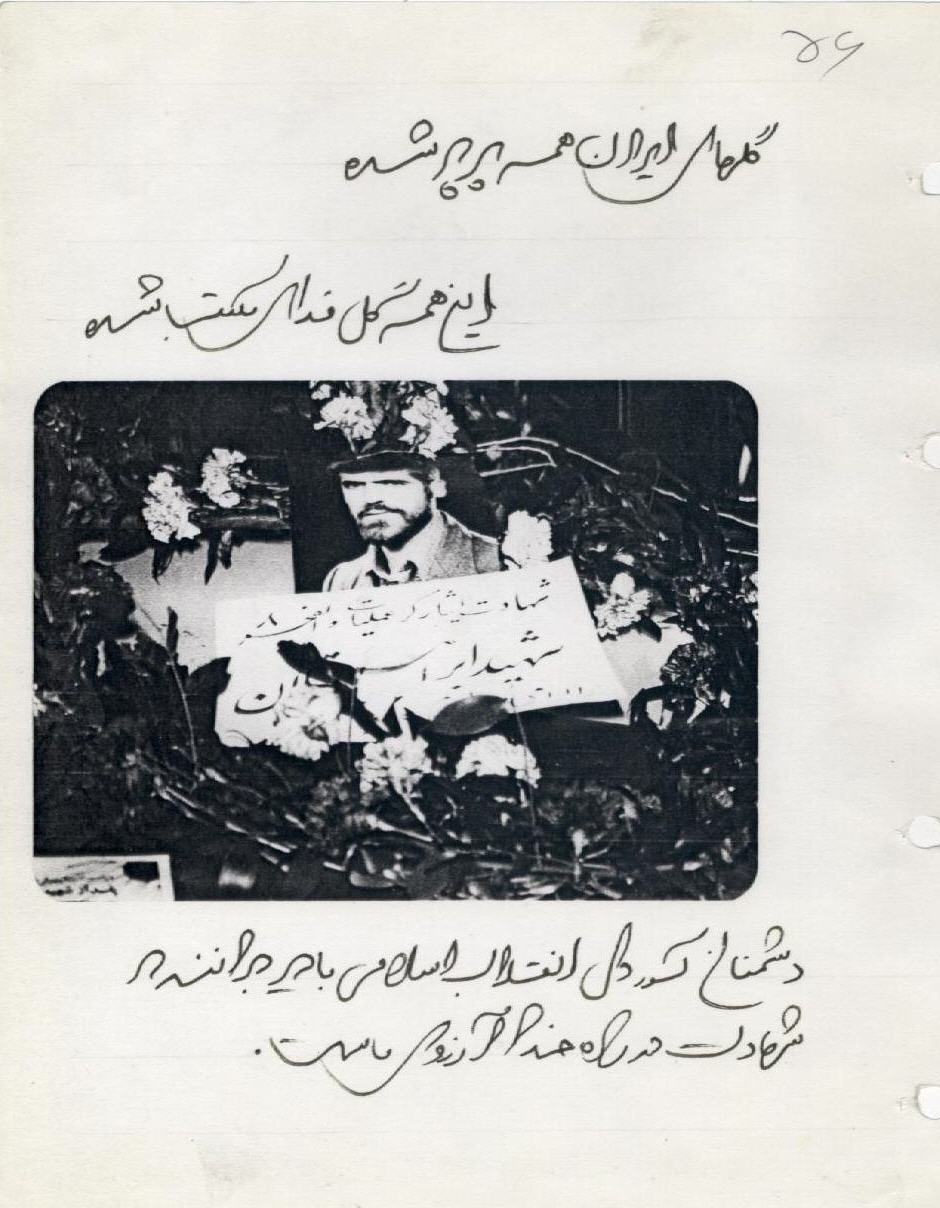 ۵۶
گلهای ایران همه پرپر شده
این همه گل فدای مکتب شده
شهادت ایثارگر عملیات والفجر ۸
شهید
دشمنان کوردل انقلاب اسلامی باید بدانند که
شهادت در راه خدا آرزوی ماست.